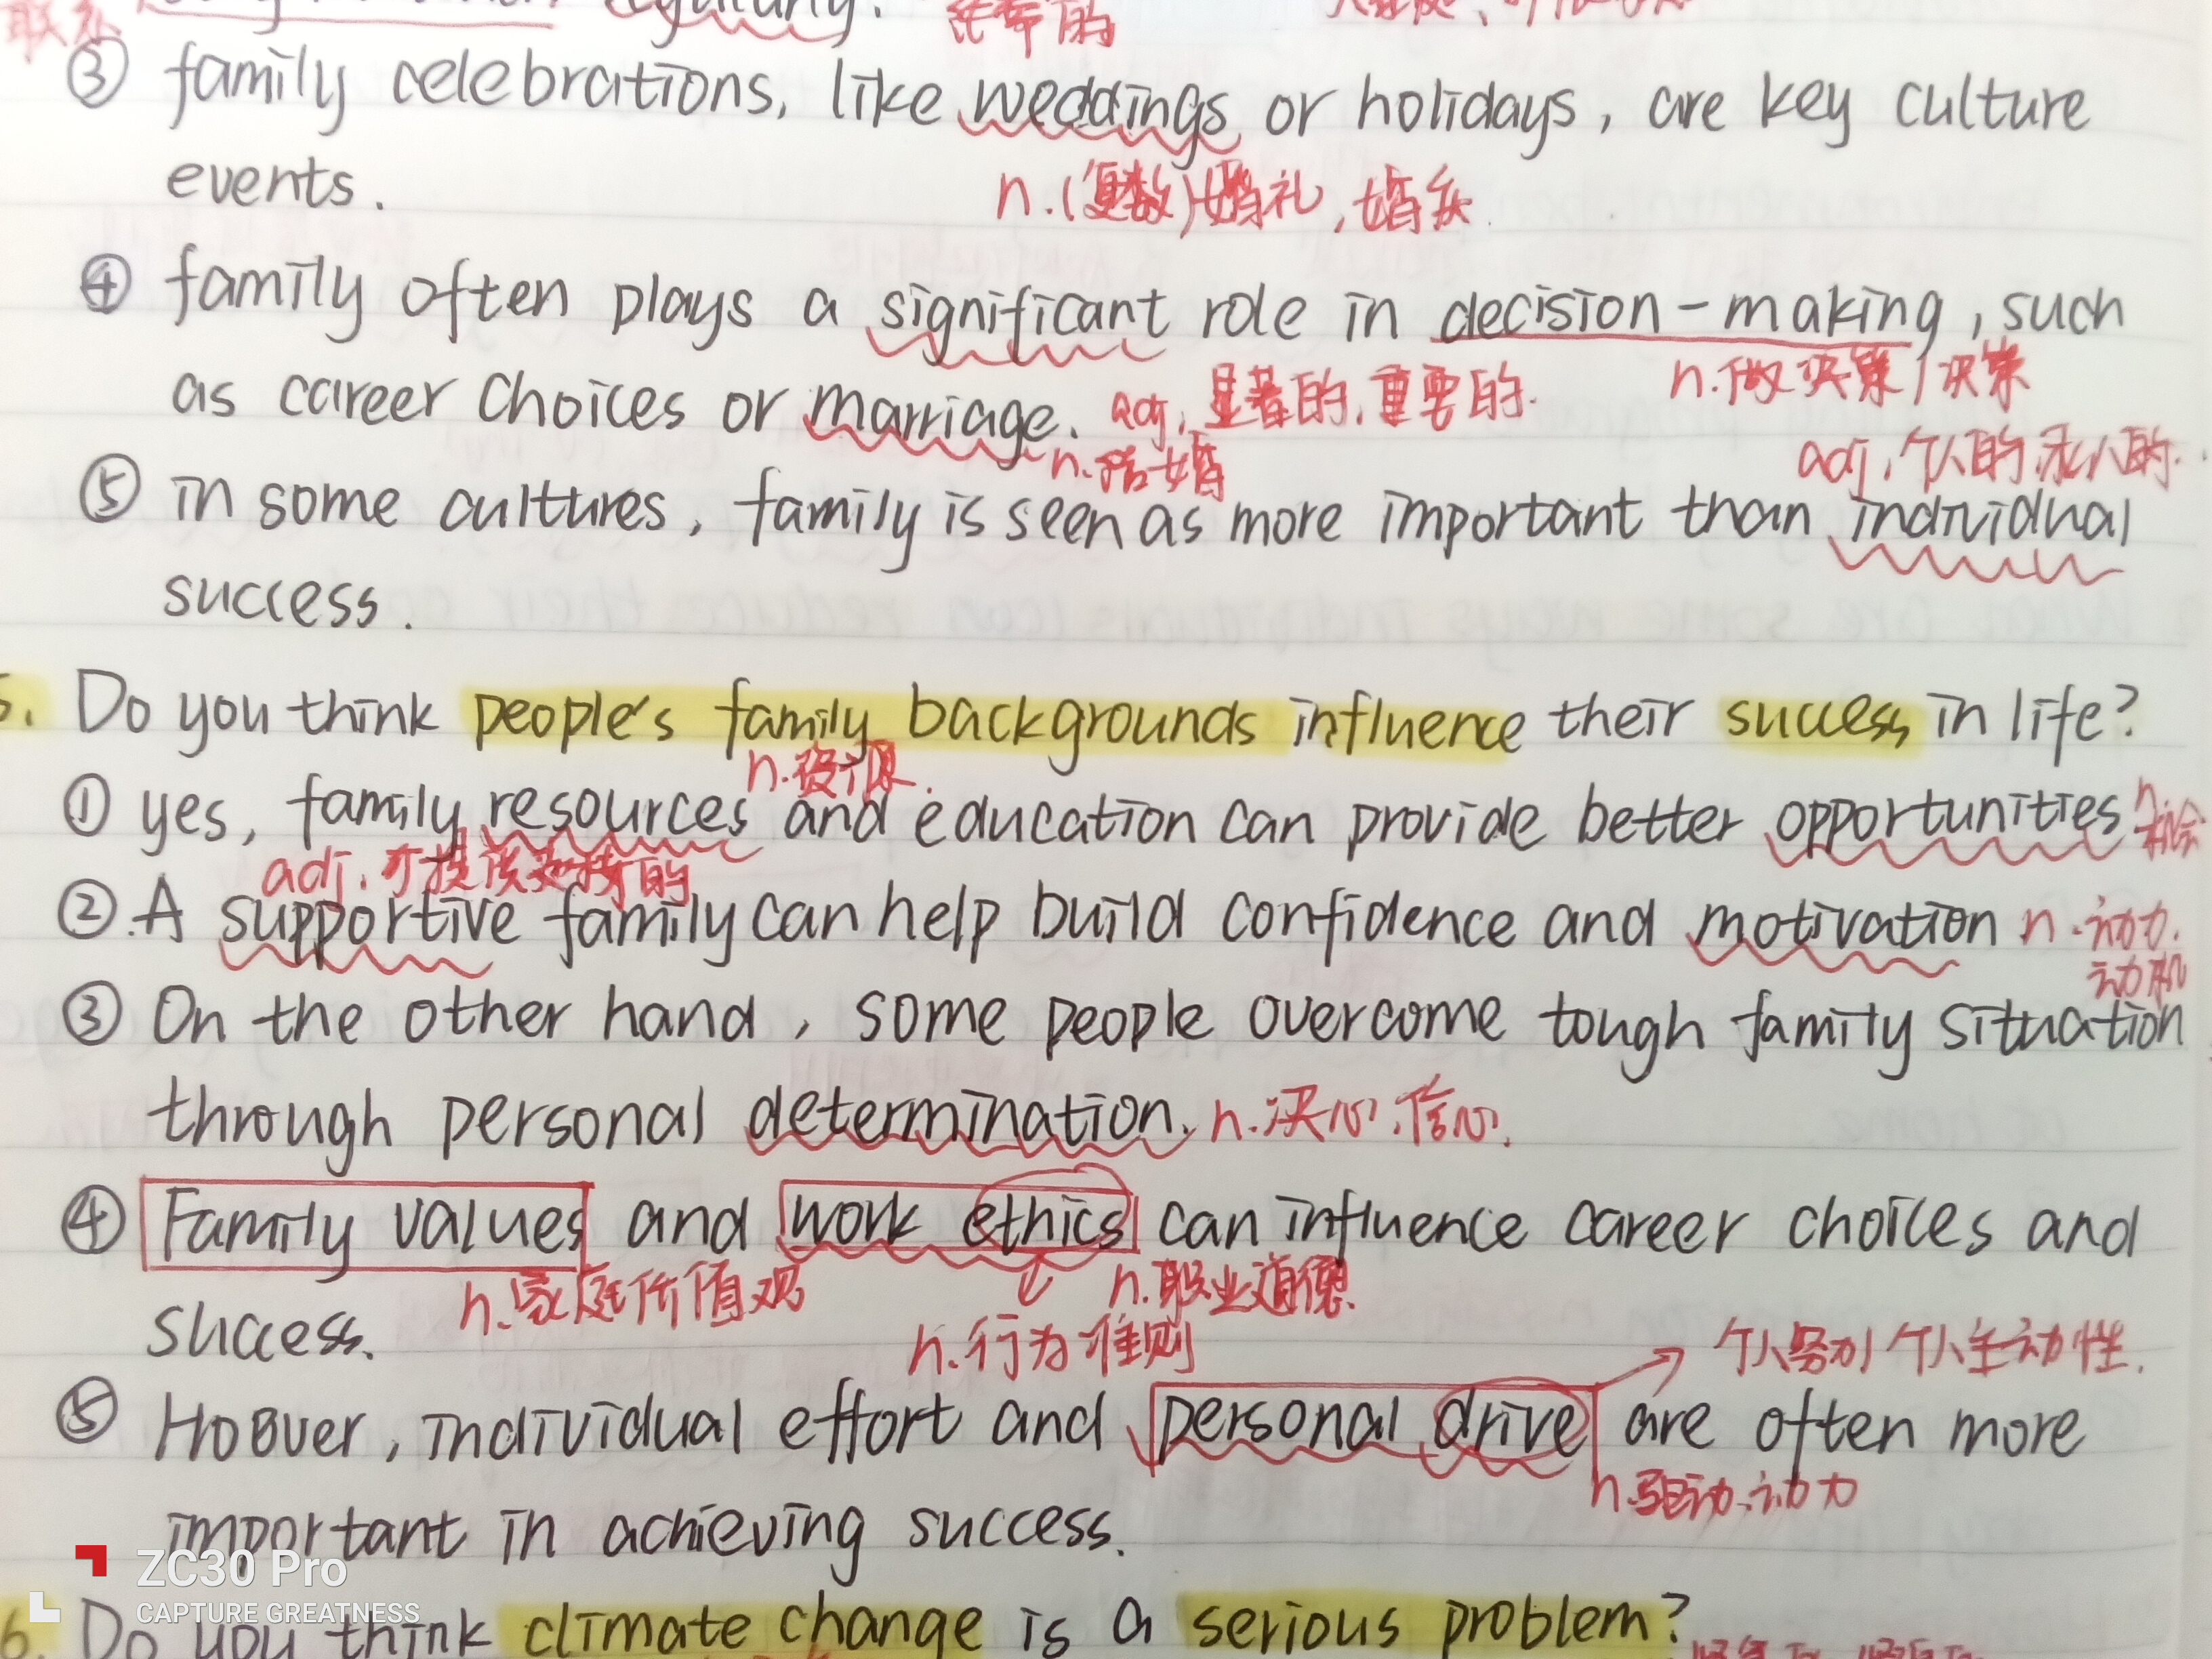 ③ family celebrations, like weddings or holidays, are key culture
events.
n.(复数)婚礼,婚宴
④ family often plays a significant role in decision-making, such
n.做决策/决策
as career choices or marriage. adj.显著的,重要的.
n.结婚
adj.个人的,私人的.
⑤ in some cultures, family is seen as more important than individual
success.
5. Do you think people's family backgrounds influence their success in life?
n.资源.
① yes, family resources and education can provide better opportunities n.机会
adj.可提供支持的
② A supportive family can help build confidence and motivation n.动力.
动机
③ On the other hand, some people overcome tough family situation
through personal determination. n.决心.信心.
④ Family values and work ethics can influence career choices and
n.家庭价值观 n.职业道德.
success. n.行为准则
个人努力/个人主动性.
⑤ Hoouer, individual effort and personal drive are often more
n.驱动.动力
important in achieving success.
ZC30 Pro
CAPTURE GREATNESS
6. Do you think climate change is a serious problem?